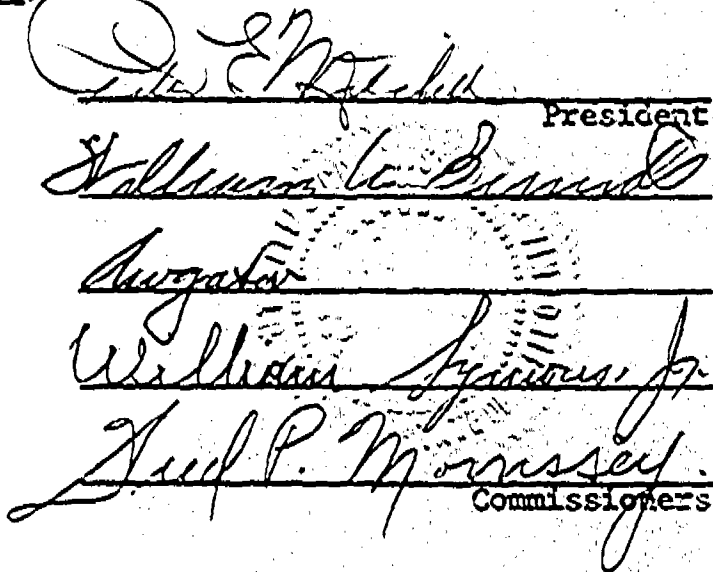 Peter E Mitchell
President
William M. Bennett
Awgatov
William Symons, Jr.
Fred P. Morrissey.
Commissioners